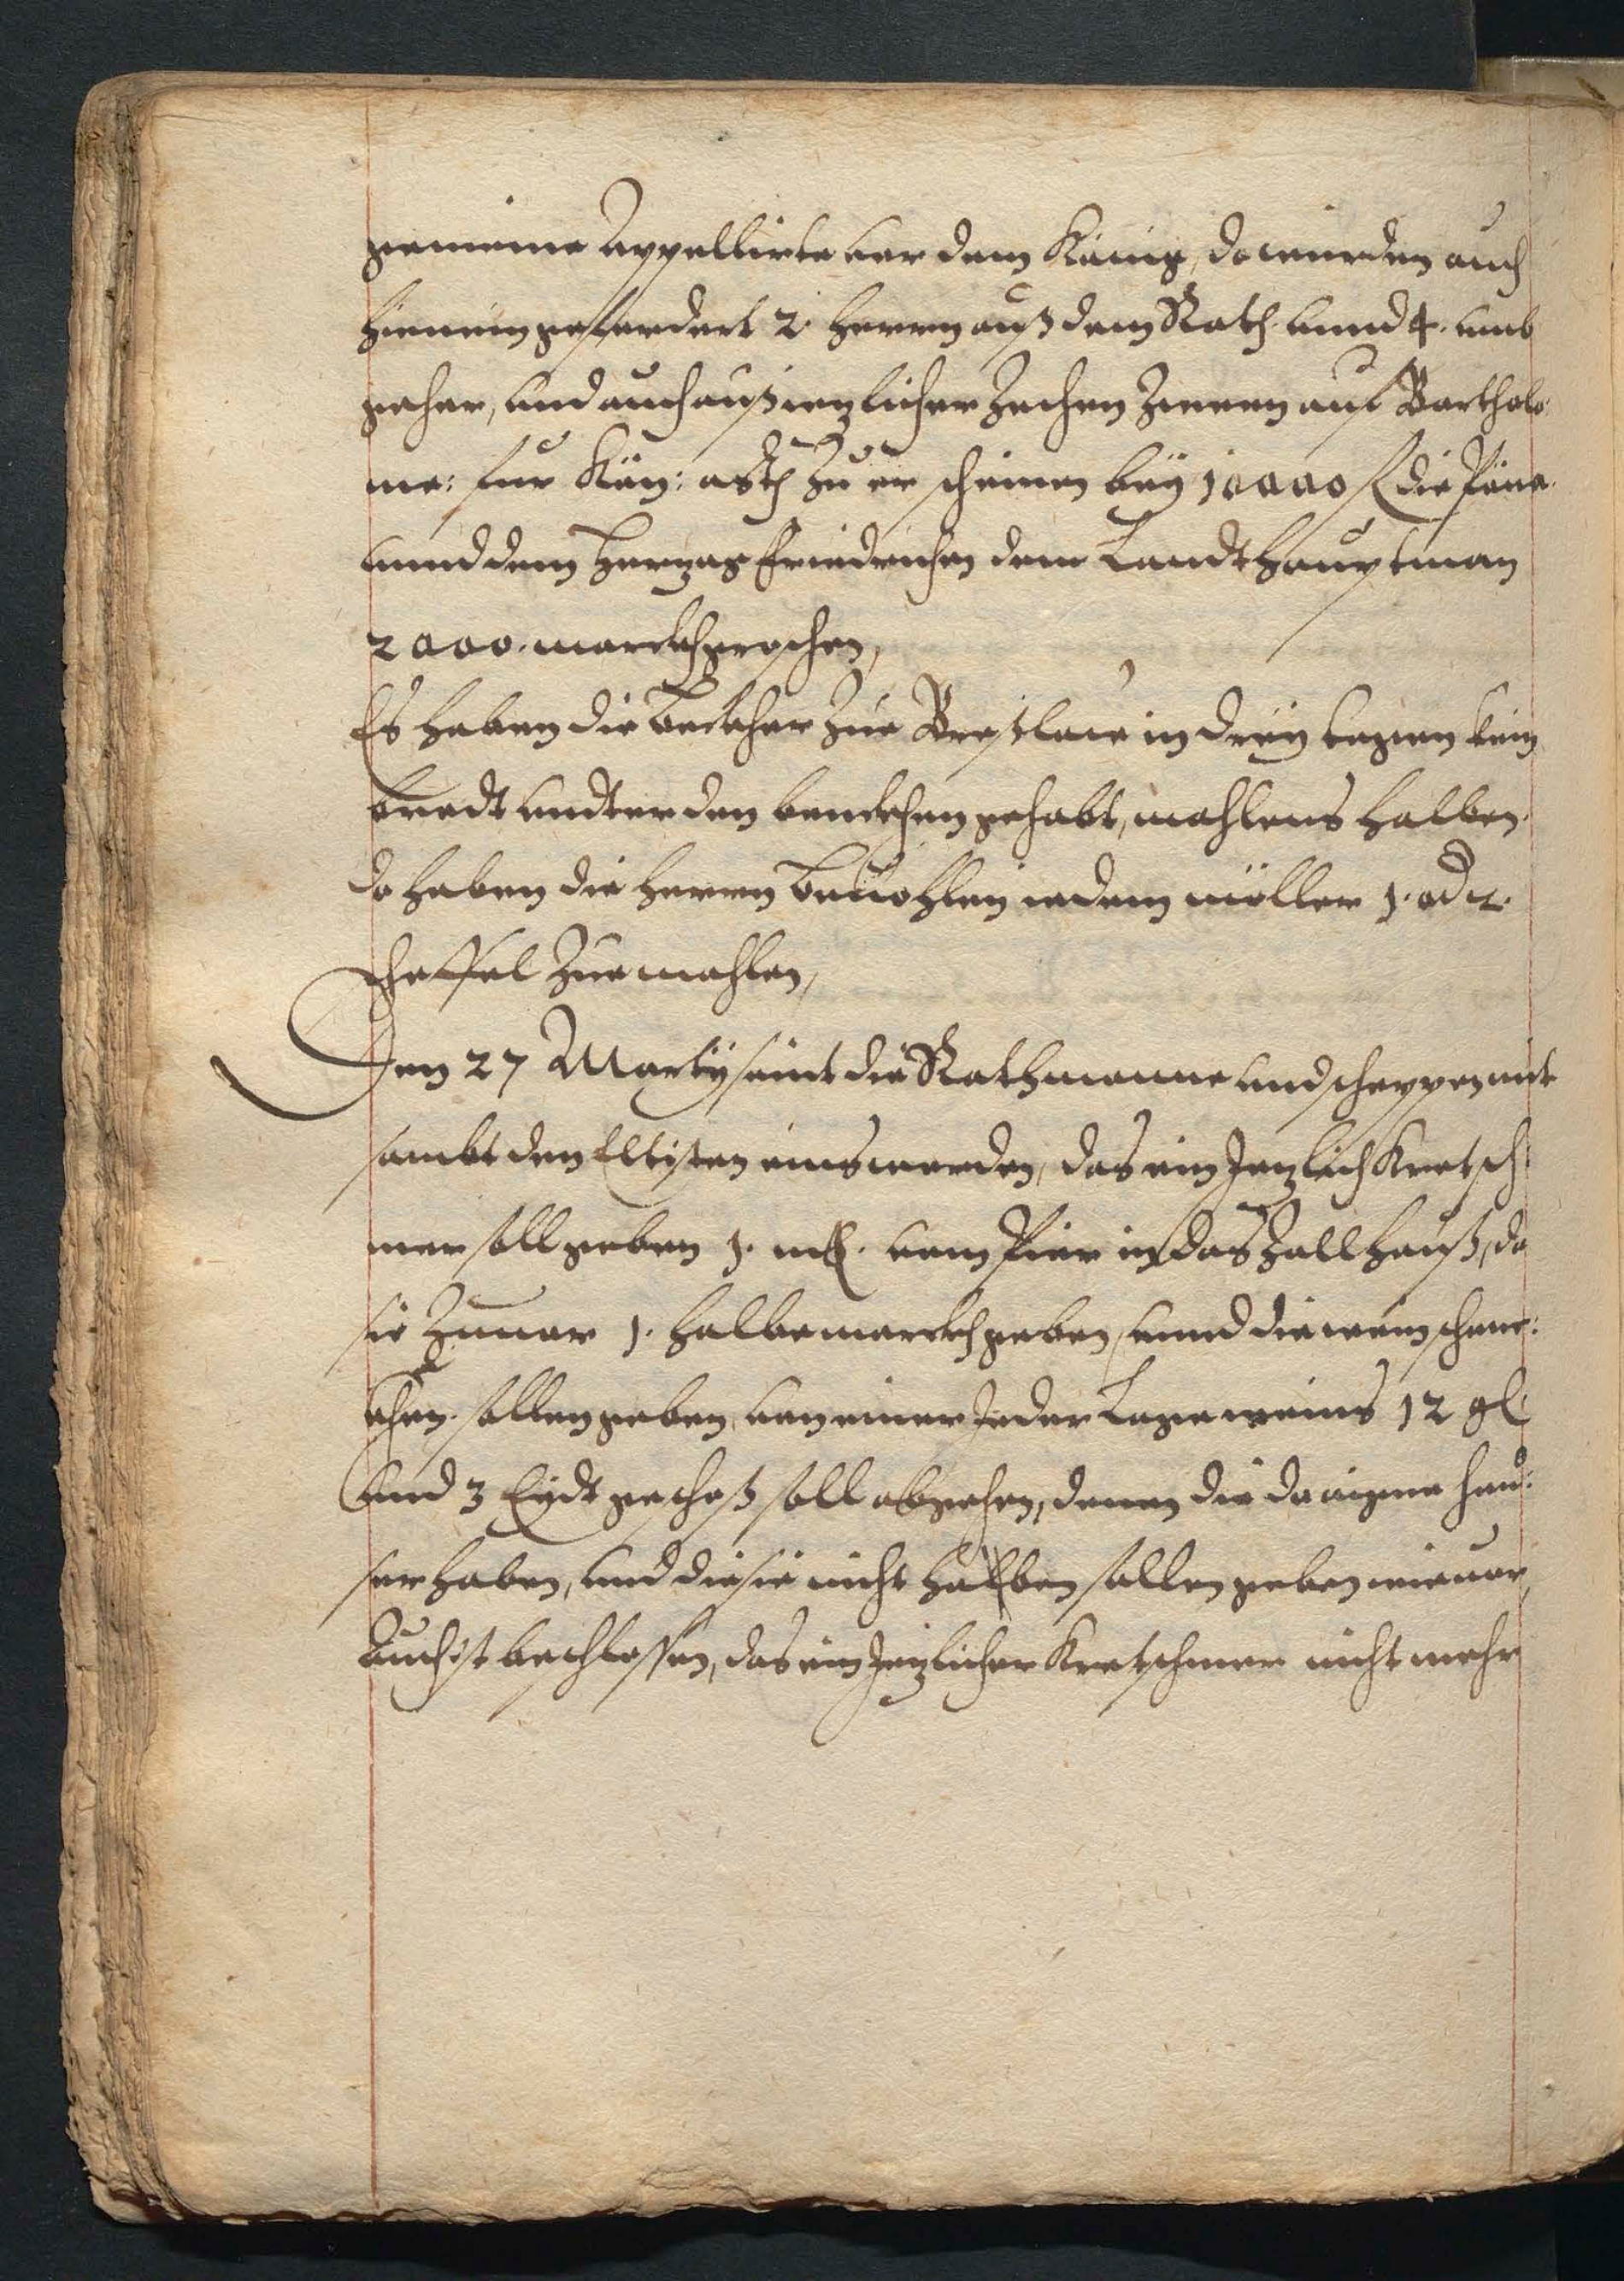 gemeine Appellirte vor dem König, do wurden auch
hienein gefordert 2. Herren auß dem Rath vnnd 4. vmb
geher, vnd auch auß ietzlicher Zechen Zweene auf Bartholo:
me: fur Kön: Mtt zu er scheinen bey 10000 fl die Pöne.
vnnd dem Hertzog Friedrichen dem Landthauptman
2000. marckh groschen,
Es haben die Beckher zue Breßlaw in drey tagen kein
brodt vndter den benckhen gehabt, mahlens halben.
do haben die Herren bevohlen iedem müller 1. od 2.
scheffel zue mahlen,
Den 27 Marty seint die Rathmanne vnd scheppen mit
sambt den Eltisten eins worden, das ein Jetzlich Kretsch
mer soll geben 1. mk. vom Bier in das Zollhauß, do
sie zuuor 1. halbe marckh geben, vnnd die weinschenc:
khen. sollen geben, von einer Jeder Lage weins 12 gl
vnd 3 Eydt geschoß soll abgehen, denen die do aigene heu:
ser haben, vnd die sie nicht halben sollen geben wie uor,
Auch ist beschlossen, das ein Jetzlicher Kretschmer nicht mehr